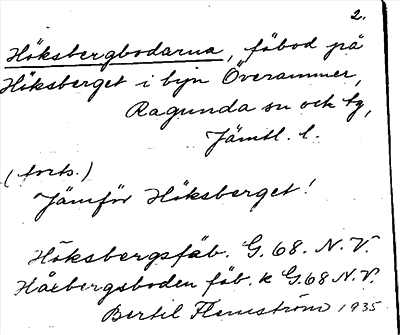 2.
Höksbergbodarna, fäbod på
Höksberget i byn Överammer,
Ragunda sn och tg,
Jämtl. l.
(forts.)
Jämför Höksberget!
Höksbergsfäb. G. 68. N. V.
Håxbergsboden fäb. k G.68 N.V.
Bertil Flemström 1935